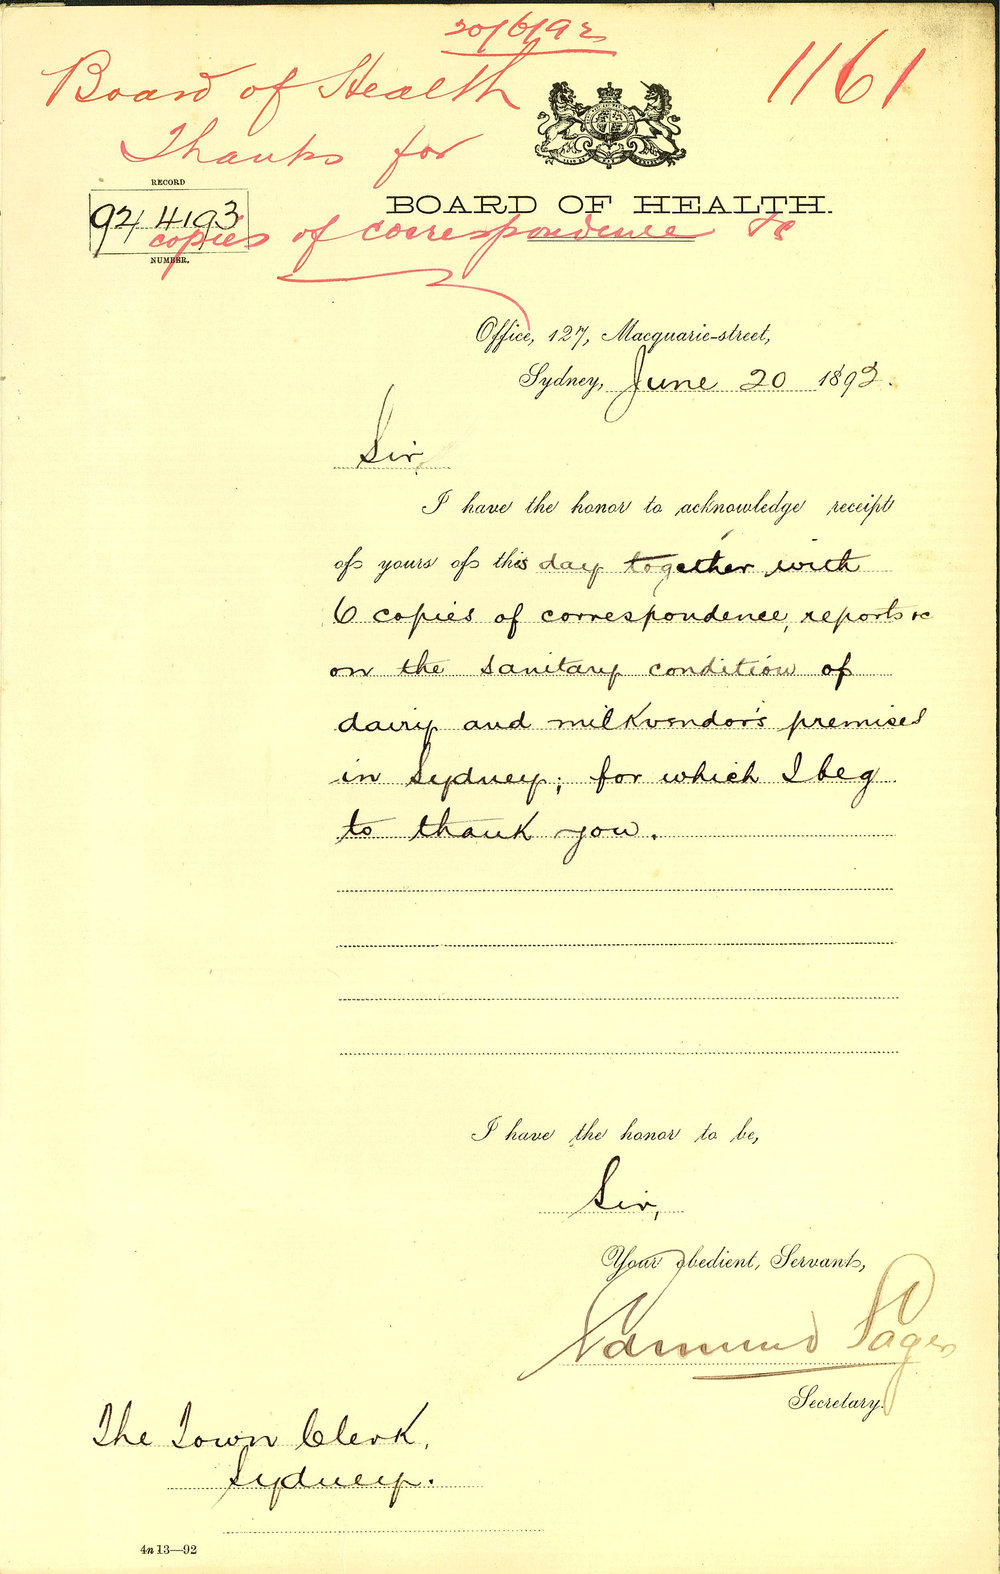 20/6/92
1161
Board of Health
Thanks for
copies of correspondence &c
RECORD
92 4193
NUMBER.
BOARD OF HEALTH.
Office, 127, Macquarie-street,
Sydney, June 20 1892.
Sir,
I have the honor to acknowledge receipt
of yours of this day together with
6 copies of correspondence, reports &c
on the sanitary condition of
dairy and milkvendor's premises
in Sydney; for which I beg
to thank you.
I have the honor to be,
Sir,
Your obedient Servant,
Edmund Sager
Secretary.
The Town Clerk,
Sydney.
4n 13—92